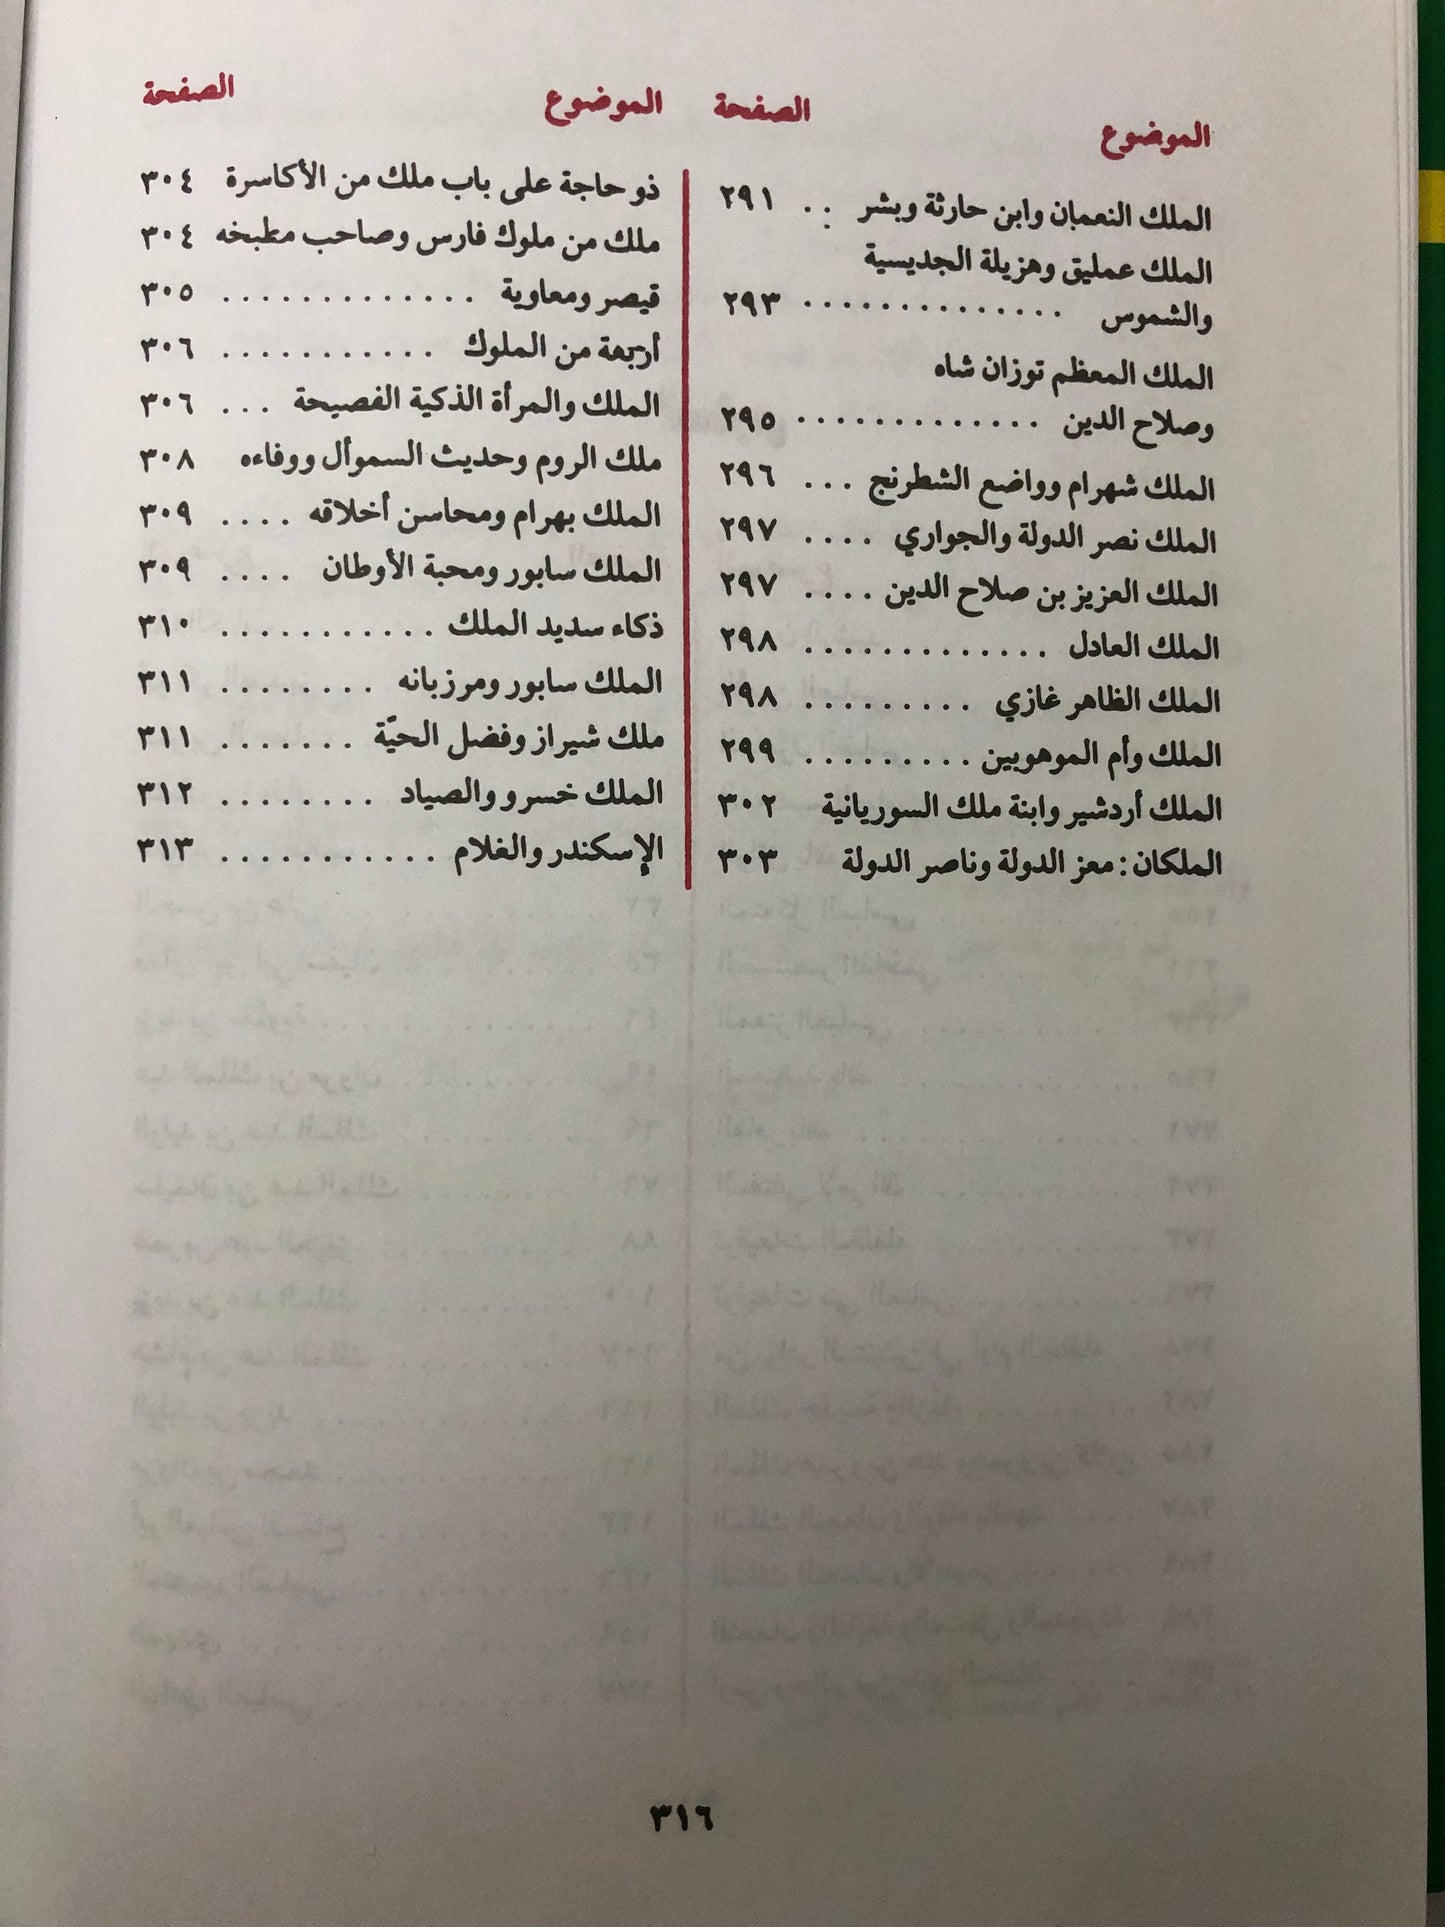 الموضوع الصفحة
الملك النعمان وابن حارثة وبشر . : ٢٩١
الملك عمليق وهزيلة الجديسية
والشموس . . . . . . . . . . . . . . ٢٩٣
الملك المعظم توزان شاه
وصلاح الدين . . . . . . . . . . . . . ٢٩٥
الملك شهرام وواضع الشطرنج . . . ٢٩٦
الملك نصر الدولة والجواري . . . . ٢٩٧
الملك العزيز بن صلاح الدين . . . . ٢٩٧
الملك العادل . . . . . . . . . . . . . ٢٩٨
الملك الظاهر غازي . . . . . . . . . ٢٩٨
الملك وأم الموهوبين . . . . . . . . . ٢٩٩
الملك أردشير وابنة ملك السوريانية ٣٠٢
الملكان: معز الدولة وناصر الدولة ٣٠٣
الموضوع الصفحة
ذو حاجة على باب ملك من الأكاسرة ٣٠٤
ملك من ملوك فارس وصاحب مطبخه ٣٠٤
قيصر ومعاوية . . . . . . . . . . . . . ٣٠٥
أربعة من الملوك . . . . . . . . . . . ٣٠٦
الملك والمرأة الذكية الفصيحة . . . ٣٠٦
ملك الروم وحديث السموأل ووفاءه ٣٠٨
الملك بهرام ومحاسن أخلاقه . . . . ٣٠٩
الملك سابور ومحبة الأوطان . . . . ٣٠٩
ذكاء سديد الملك . . . . . . . . . . . ٣١٠
الملك سابور ومرزبانه . . . . . . . . ٣١١
ملك شيراز وفضل الحيّة . . . . . . . ٣١١
الملك خسرو والصياد . . . . . . . . ٣١٢
الإسكندر والغلام . . . . . . . . . . . ٣١٣
٣١٦